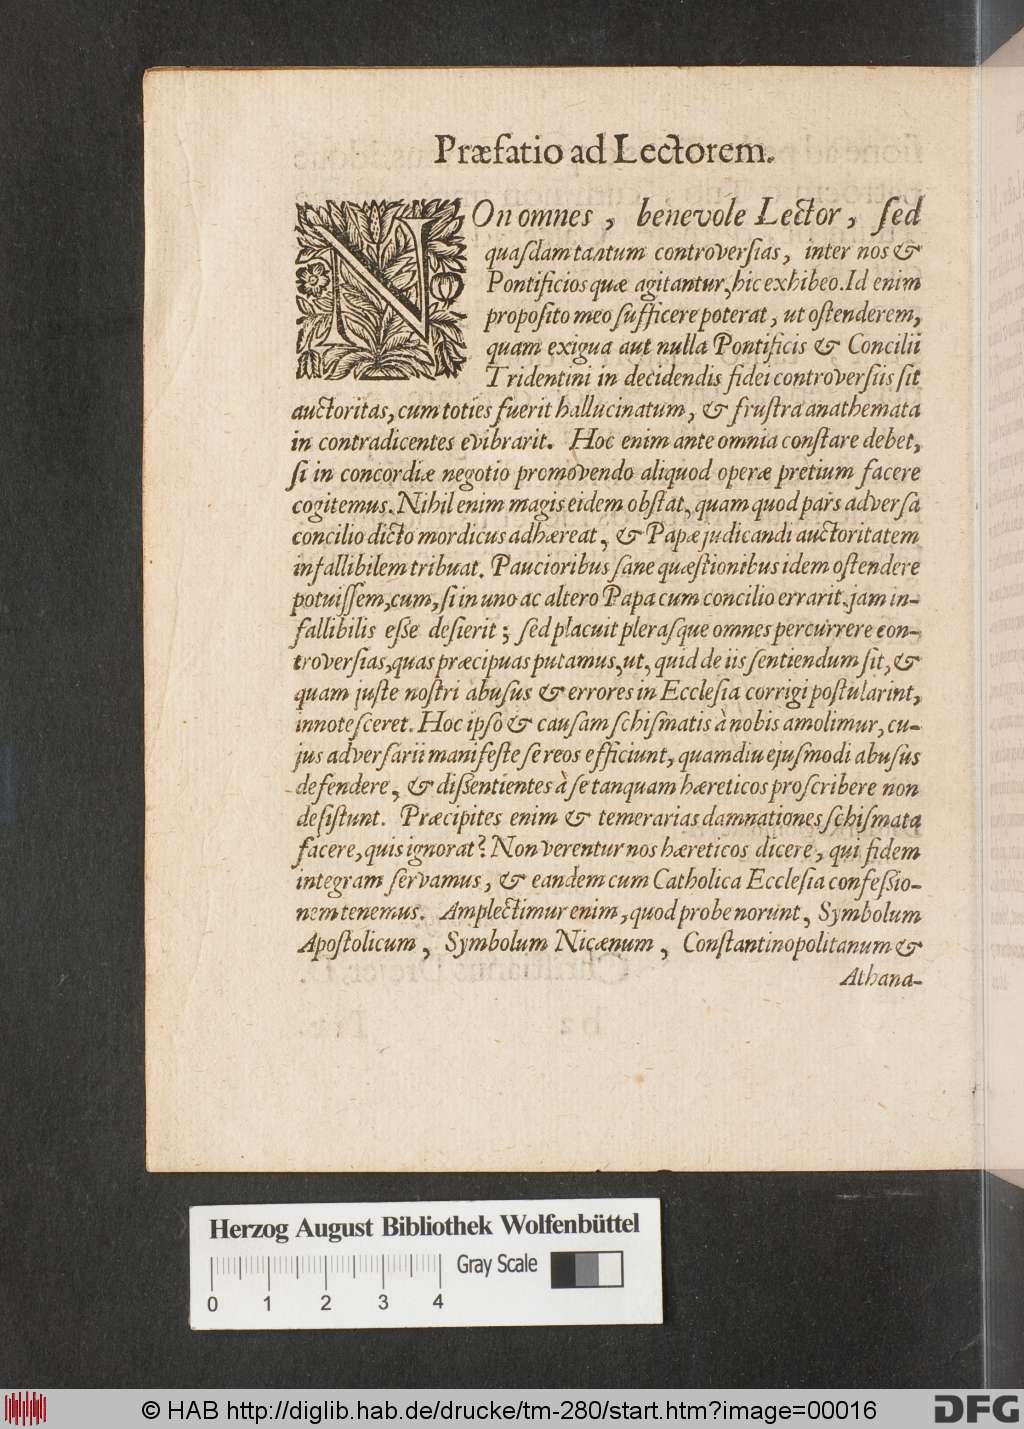 Præfatio ad Lectorem.
NOn omnes, benevole Lector, sed
quasdam tantum controversias, inter nos &
Pontificios quæ agitantur, hic exhibeo. Id enim
proposito meo sufficere poterat, ut ostenderem,
quam exigua aut nulla Pontificis & Concilii
Tridentini in decidendis fidei controversiis sit
auctoritas, cum toties fuerit hallucinatum, & frustra anathemata
in contradicentes evibrarit. Hoc enim ante omnia constare debet,
si in concordiæ negotio promovendo aliquod operæ pretium facere
cogitemus. Nihil enim magis eidem obstat, quam quod pars adversa
concilio dicto mordicus adhæreat, & Papæ judicandi auctoritatem
infallibilem tribuat. Paucioribus sane quæstionibus idem ostendere
potuissem, cum, si in uno ac altero Papa cum concilio errarit, jam in-
fallibilis esse desierit; sed placuit plerasque omnes percurrere con-
troversias, quas præcipuas putamus, ut, quid de iis sentiendum sit, &
quam juste nostri abusus & errores in Ecclesia corrigi postularint,
innotesceret. Hoc ipso & causam schismatis à nobis amolimur, cu-
jus adversarii manifeste se reos efficiunt, quamdiu ejusmodi abusus
defendere, & dissentientes à se tanquam hæreticos proscribere non
desistunt. Præcipites enim & temerarias damnationes schismata
facere, quis ignorat? Non verentur nos hæreticos dicere, qui fidem
integram servamus, & eandem cum Catholica Ecclesia confessio-
nem tenemus. Amplectimur enim, quod probe norunt, Symbolum
Apostolicum, Symbolum Nicænum, Constantinopolitanum &
Athana-
Herzog August Bibliothek Wolfenbüttel
Gray Scale
0 1 2 3 4
© HAB http://diglib.hab.de/drucke/tm-280/start.htm?image=00016
DFG